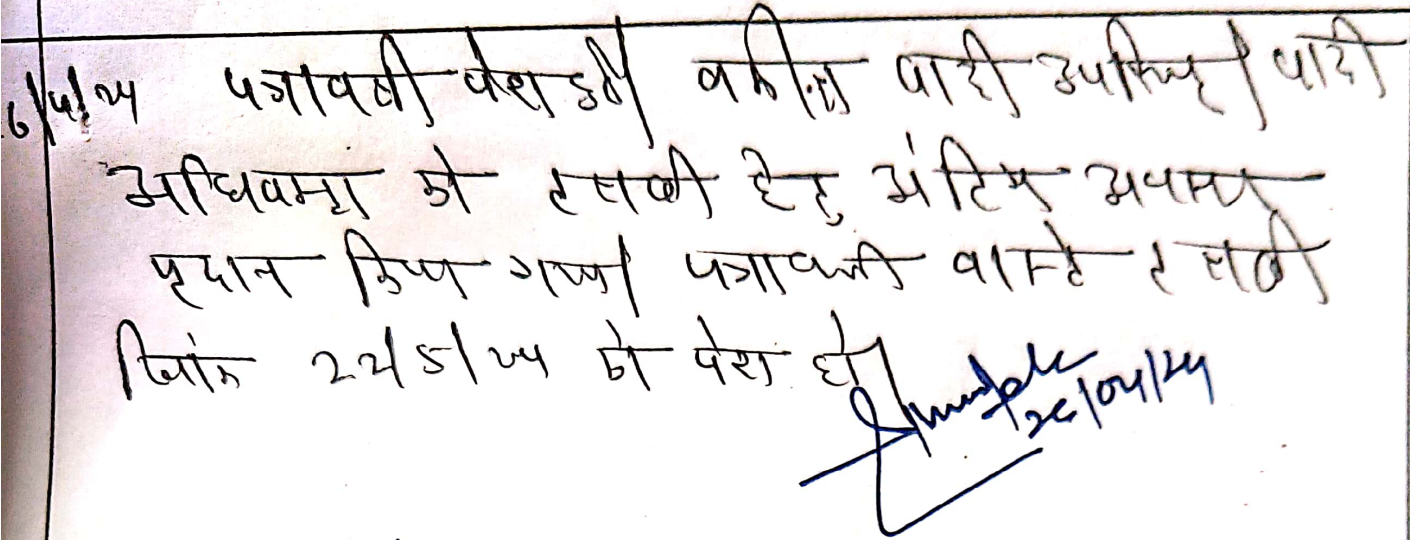 6/4/24 पत्रावली पेश हुई। वकील वादी उपस्थित। वादी
अधिवक्ता को तलबी हेतु अंतिम अवसर
प्रदान किया गया। पत्रावली वास्ते तलबी
दिनांक 22/5/24 को पेश हो।
26/04/24